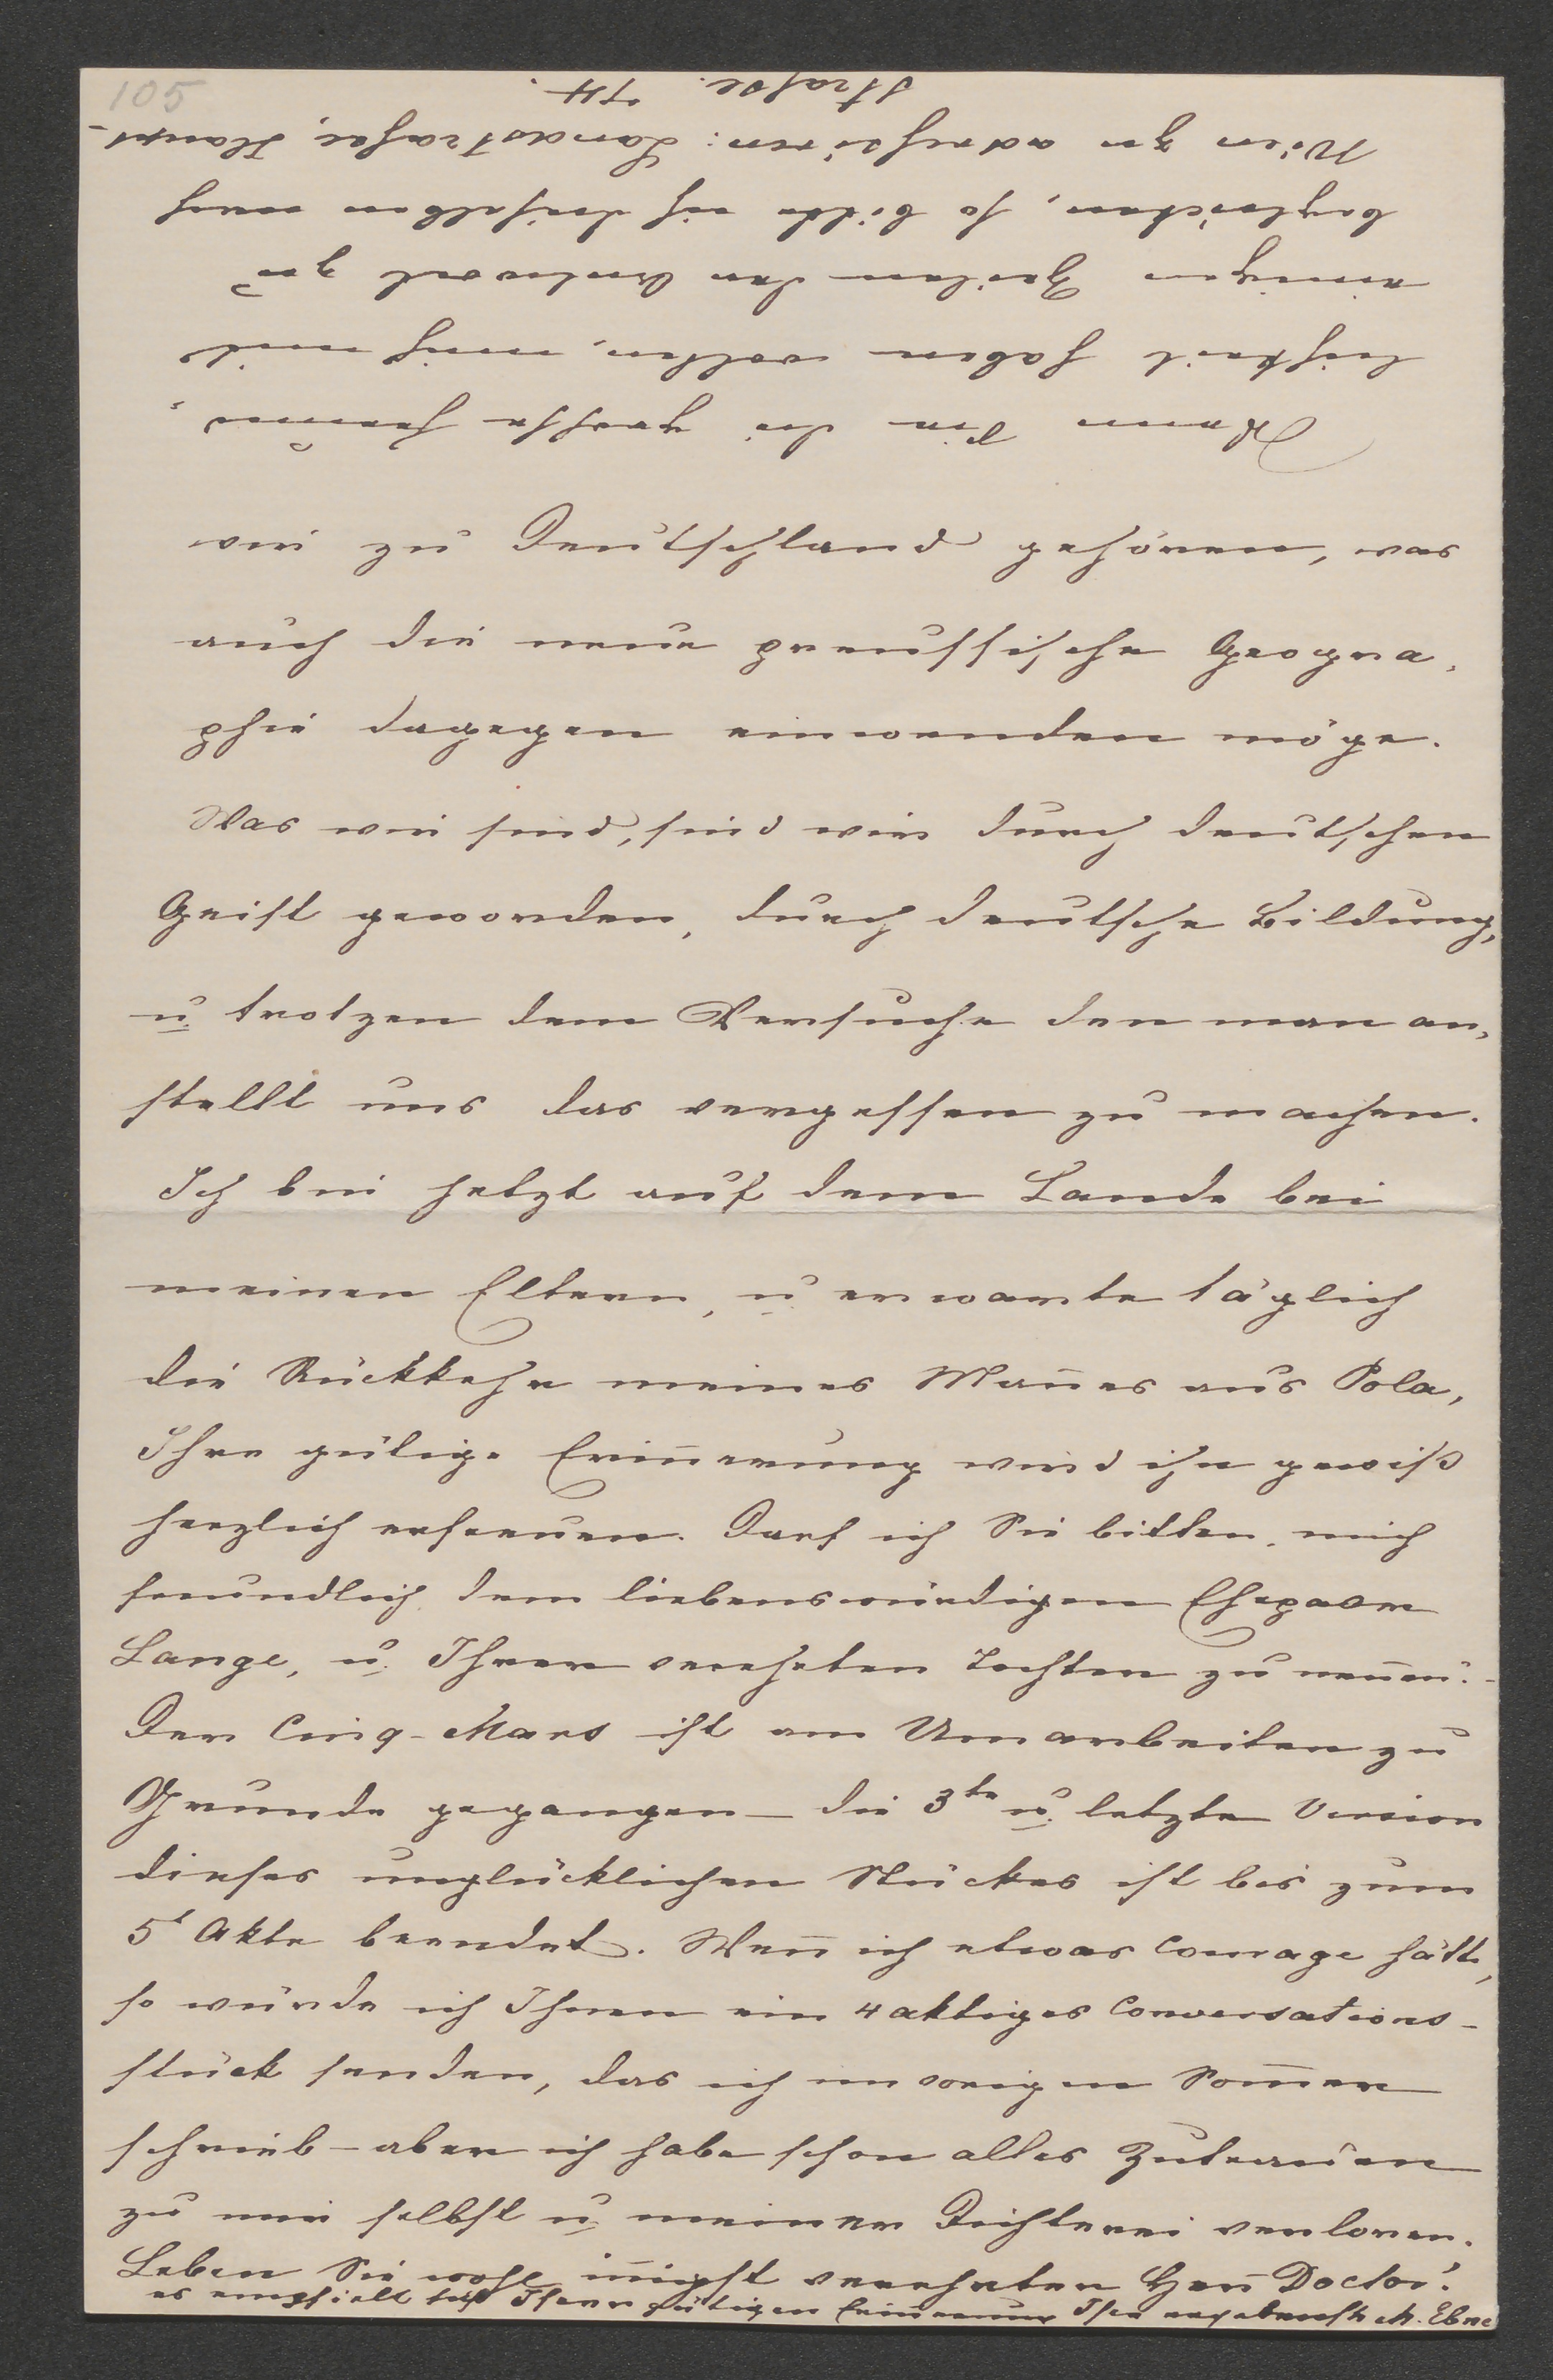 105
wir zu Deutschland gehören, was
auch die neue preussische Geogra,
phie dagegen einwenden möge.
Was wir sind, sind wir durch deutschen
Geist geworden, durch deutsche Bildung,
u. trotzen dem Versuche den man an,
stellt uns das vergessen zu machen.
Ich bin jetzt auf dem Lande bei
meinen Eltern, u. erwarte täglich
die Rückkehr meines Man̅es aus Pola,
Ihre gütige Erin̅erung wird ihn gewiß
herzlich erfreuen. Darf ich Sie bitten, mich
freundlich dem liebenswürdigen Ehepaar
Lange, u. Ihrer verehrten Tochter zu nen̅en. -
Der Cinq-Mars ist am Umarbeiten zu
Grunde gegangen – die 3te u. letzte Version
dieses unglücklichen Stückes ist bis zum
5t Akte beendet. Wen̅ ich etwas Courage hätte,
so würde ich Ihnen ein 4 aktiges Conversations-
stück senden, das ich im vorigen Som̅er
schrieb – aber ich habe schon alles Zutrauen
zu mir selbst u. meiner Dichterei verloren.
Leben Sie wohl in̅igst verehrter Herr̅ Doctor!
es empfielt sich Ihrer gütigen Erin̅erung Ihre ergebenste M. Ebne
Wenn Sie die große Freund,
lichkeit haben wollten, mich mit
einigen Zeilen der Antwort zu
beglücken, so bitte ich dieselben nach
Wien zu adressiren: Landstraße, Haupt-
strasse. 74.